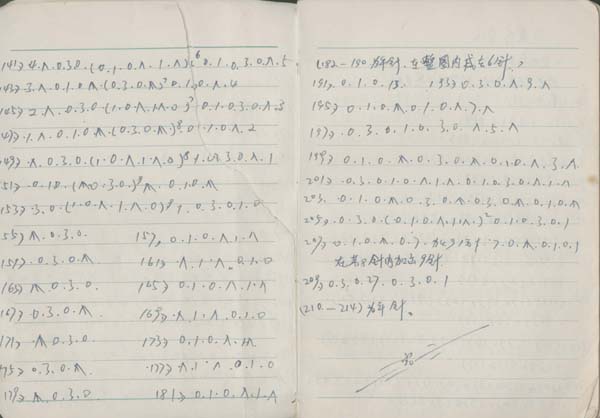 141) 4.∧.0.3.0.(0.1.0.∧.1.∧)⁶0.1.0.3.0.∧.5
143) 3.∧.0.1.0.⩚(0.3.0.⩚)⁷0.1.0.∧.4
145) 2.∧.0.3.0
147) 1.∧.0.1.0.⩚(0.3.0.⩚)⁸0.1.0.∧.2
149) ∧.0.3.0.(1.0.∧.1.∧.0)⁸1.0.3.0.∧.1
151) 0.1.0.(⩚0.3.0.)⁸⩚.0.1.0.⩚
153) 3.0.(1.0.∧.1.∧.0)⁸1.0.3.0.1.0
155) ⩚.0.3.0. 157) 0.1.0.∧.1.∧
159) 0.3.0.⩚ 161) ∧.1.∧.0.1.0
163) ⩚.0.3.0. 165) 0.1.0.∧.1.∧
167) 0.3.0.⩚ 169) ∧.1.∧.0.1.0
171) ⩚.0.3.0 173) 0.1.0.∧.1.∧
175) 0.3.0.⩚ 177) ∧.1.∧.0.1.0
179) ⩚.0.3.0 181) 0.1.0.∧.1.∧
(182—190 为平针.在整圈内减去6针.)
191) 0.1.0.13. 193) 0.3.0.∧.9.∧
195) 0.1.0.⩚.0.1.0.∧.7.∧
197) 0.3.0.1.0.3.0.∧.5.∧
199) 0.1.0.⩚.0.3.0.⩚.0.1.0.∧.3.∧
201) 0.3.0.1.0.∧.1.∧.0.1.0.3.0.∧.1.∧
203) 0.1.0.⩚.0.3.0.⩚.0.3.0.⩚.0.1.0.⩚
205) 0.3.0.(0.1.0.∧.1.∧.)²0.1.0.3.0.1
207) 0.1.0.⩚.0.7.
209) 0.3.0.27.0.3.0.1
(210—214)为平针。